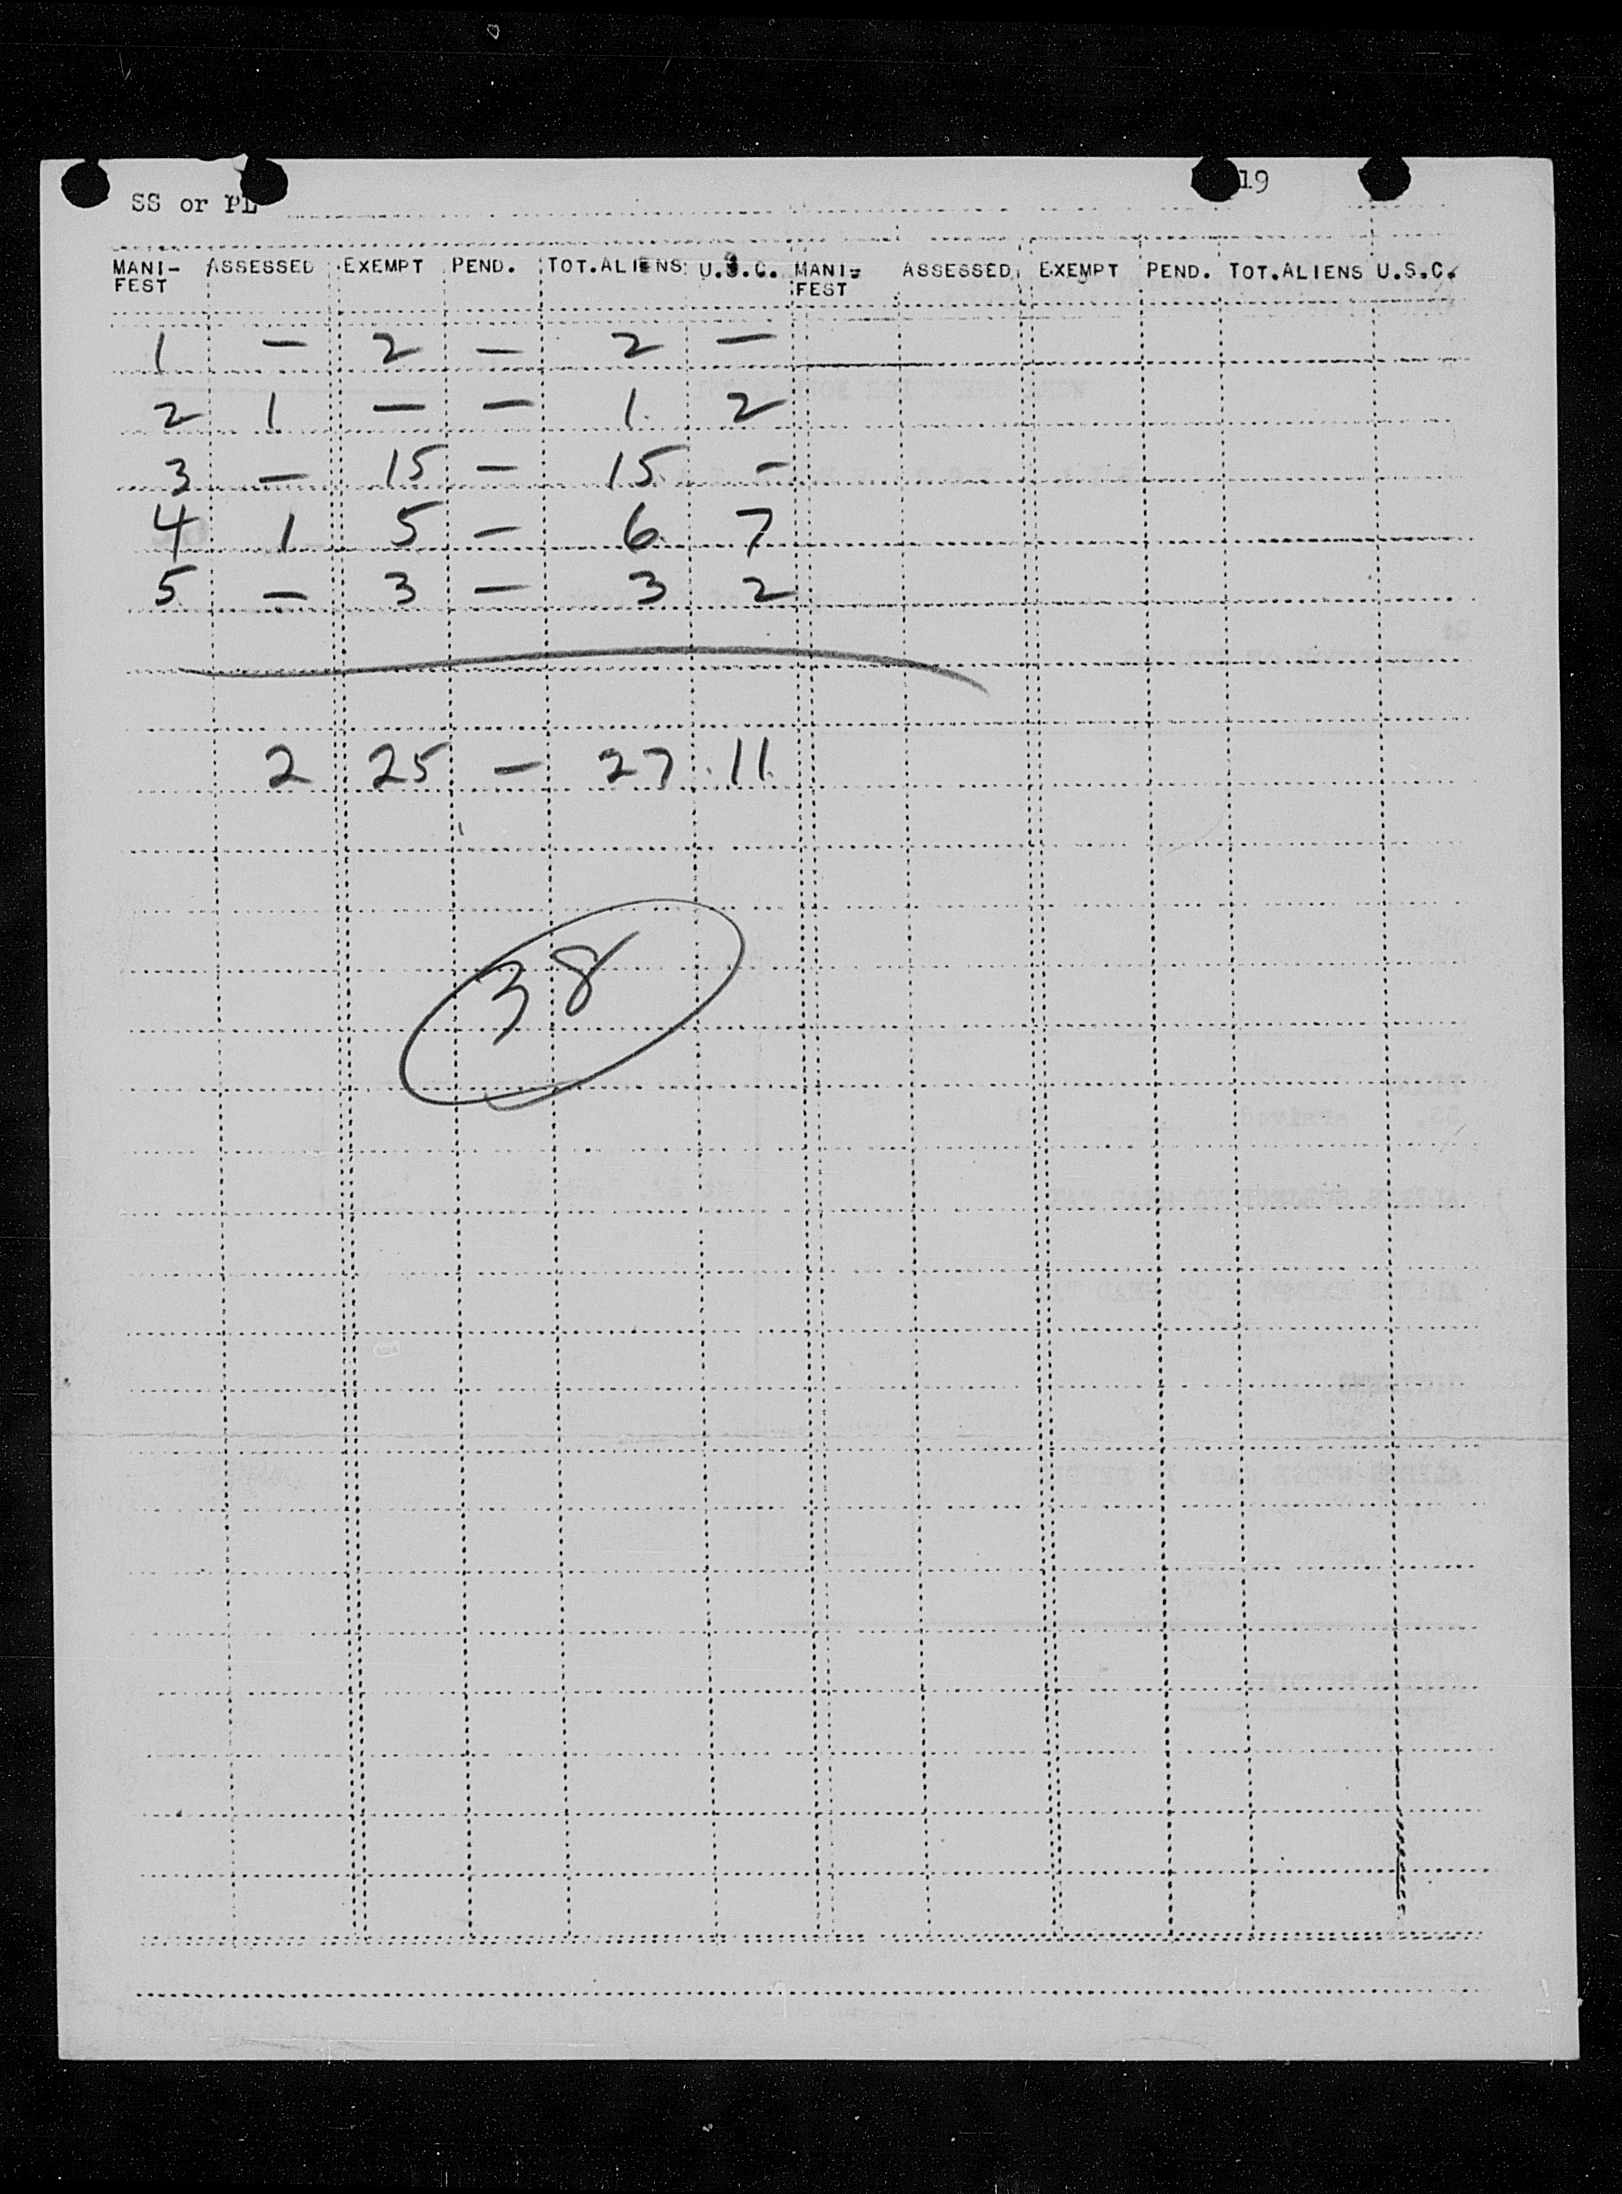 19
SS or PL
MANI- ASSESSED EXEMPT PEND. TOT.ALIENS U.S.C. MANI- ASSESSED EXEMPT PEND. TOT.ALIENS U.S.C.
FEST FEST
1 — 2 — 2 —
2 1 — — 1 2
3 — 15 — 15 —
4 1 5 — 6 7
5 — 3 — 3 2
2 25 — 27 11
38